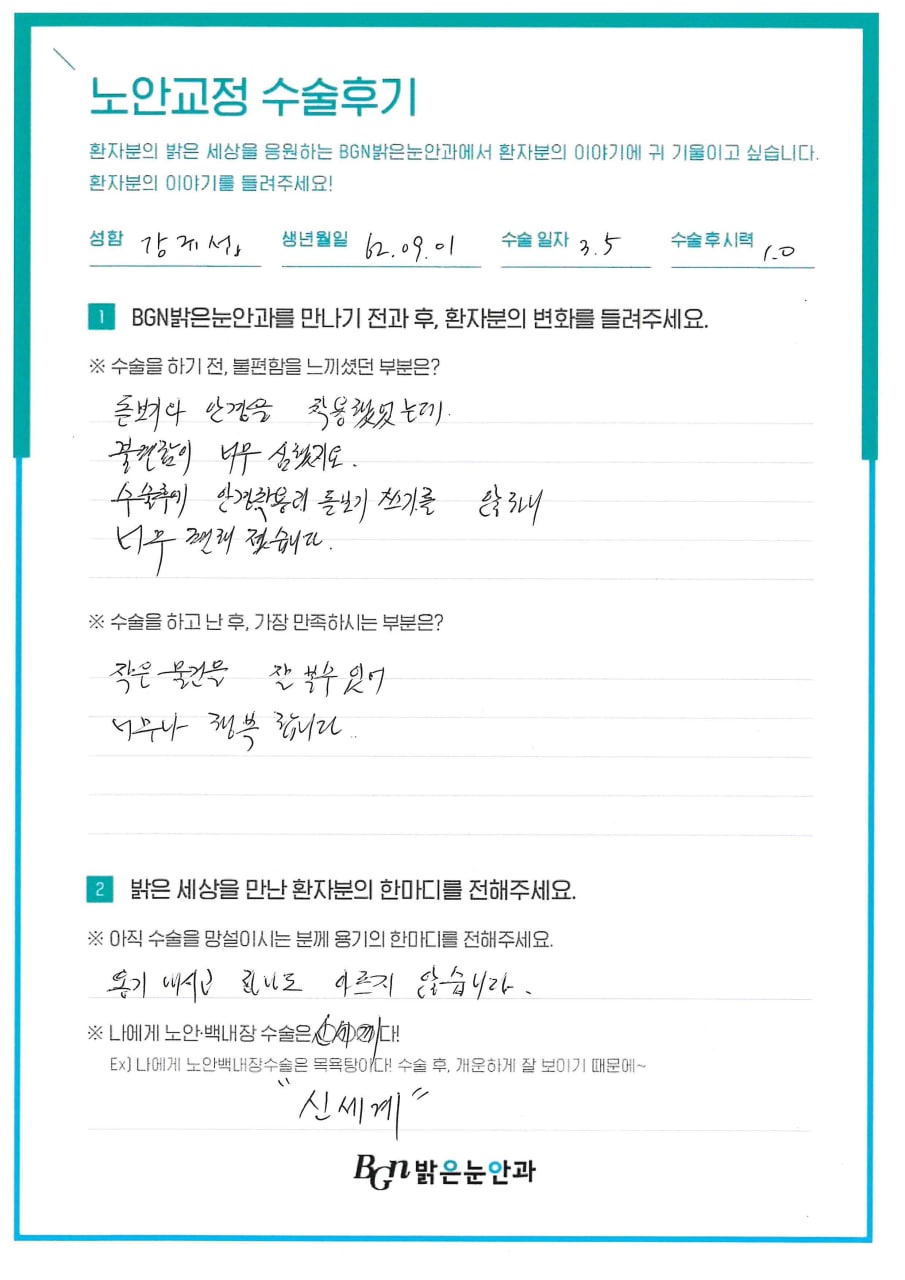 노안교정 수술후기
환자분의 밝은 세상을 응원하는 BGN밝은눈안과에서 환자분의 이야기에 귀 기울이고 싶습니다.
환자분의 이야기를 들려주세요!
성함 생년월일 62.09.01 수술 일자 3.5 수술 후 시력 1.0
1 BGN밝은눈안과를 만나기 전과 후, 환자분의 변화를 들려주세요.
※ 수술을 하기 전, 불편함을 느끼셨던 부분은?
돋보기와 안경을 착용했었는데.
불편함이 너무 심했지요.
수술후에 안경착용과 돋보기 쓰기를 않하니
너무 편해 졌습니다.
※ 수술을 하고 난 후, 가장 만족하시는 부분은?
작은 물건을 잘 볼수 있어
너무나 행복 합니다..
2 밝은 세상을 만난 환자분의 한마디를 전해주세요.
※ 아직 수술을 망설이시는 분께 용기의 한마디를 전해주세요.
용기 내시고 하나도 아프지 않습니다.
※ 나에게 노안·백내장 수술은 다!
Ex) 나에게 노안백내장수술은 목욕탕이다! 수술 후, 개운하게 잘 보이기 때문에~
"신세계"
BGN 밝은눈안과